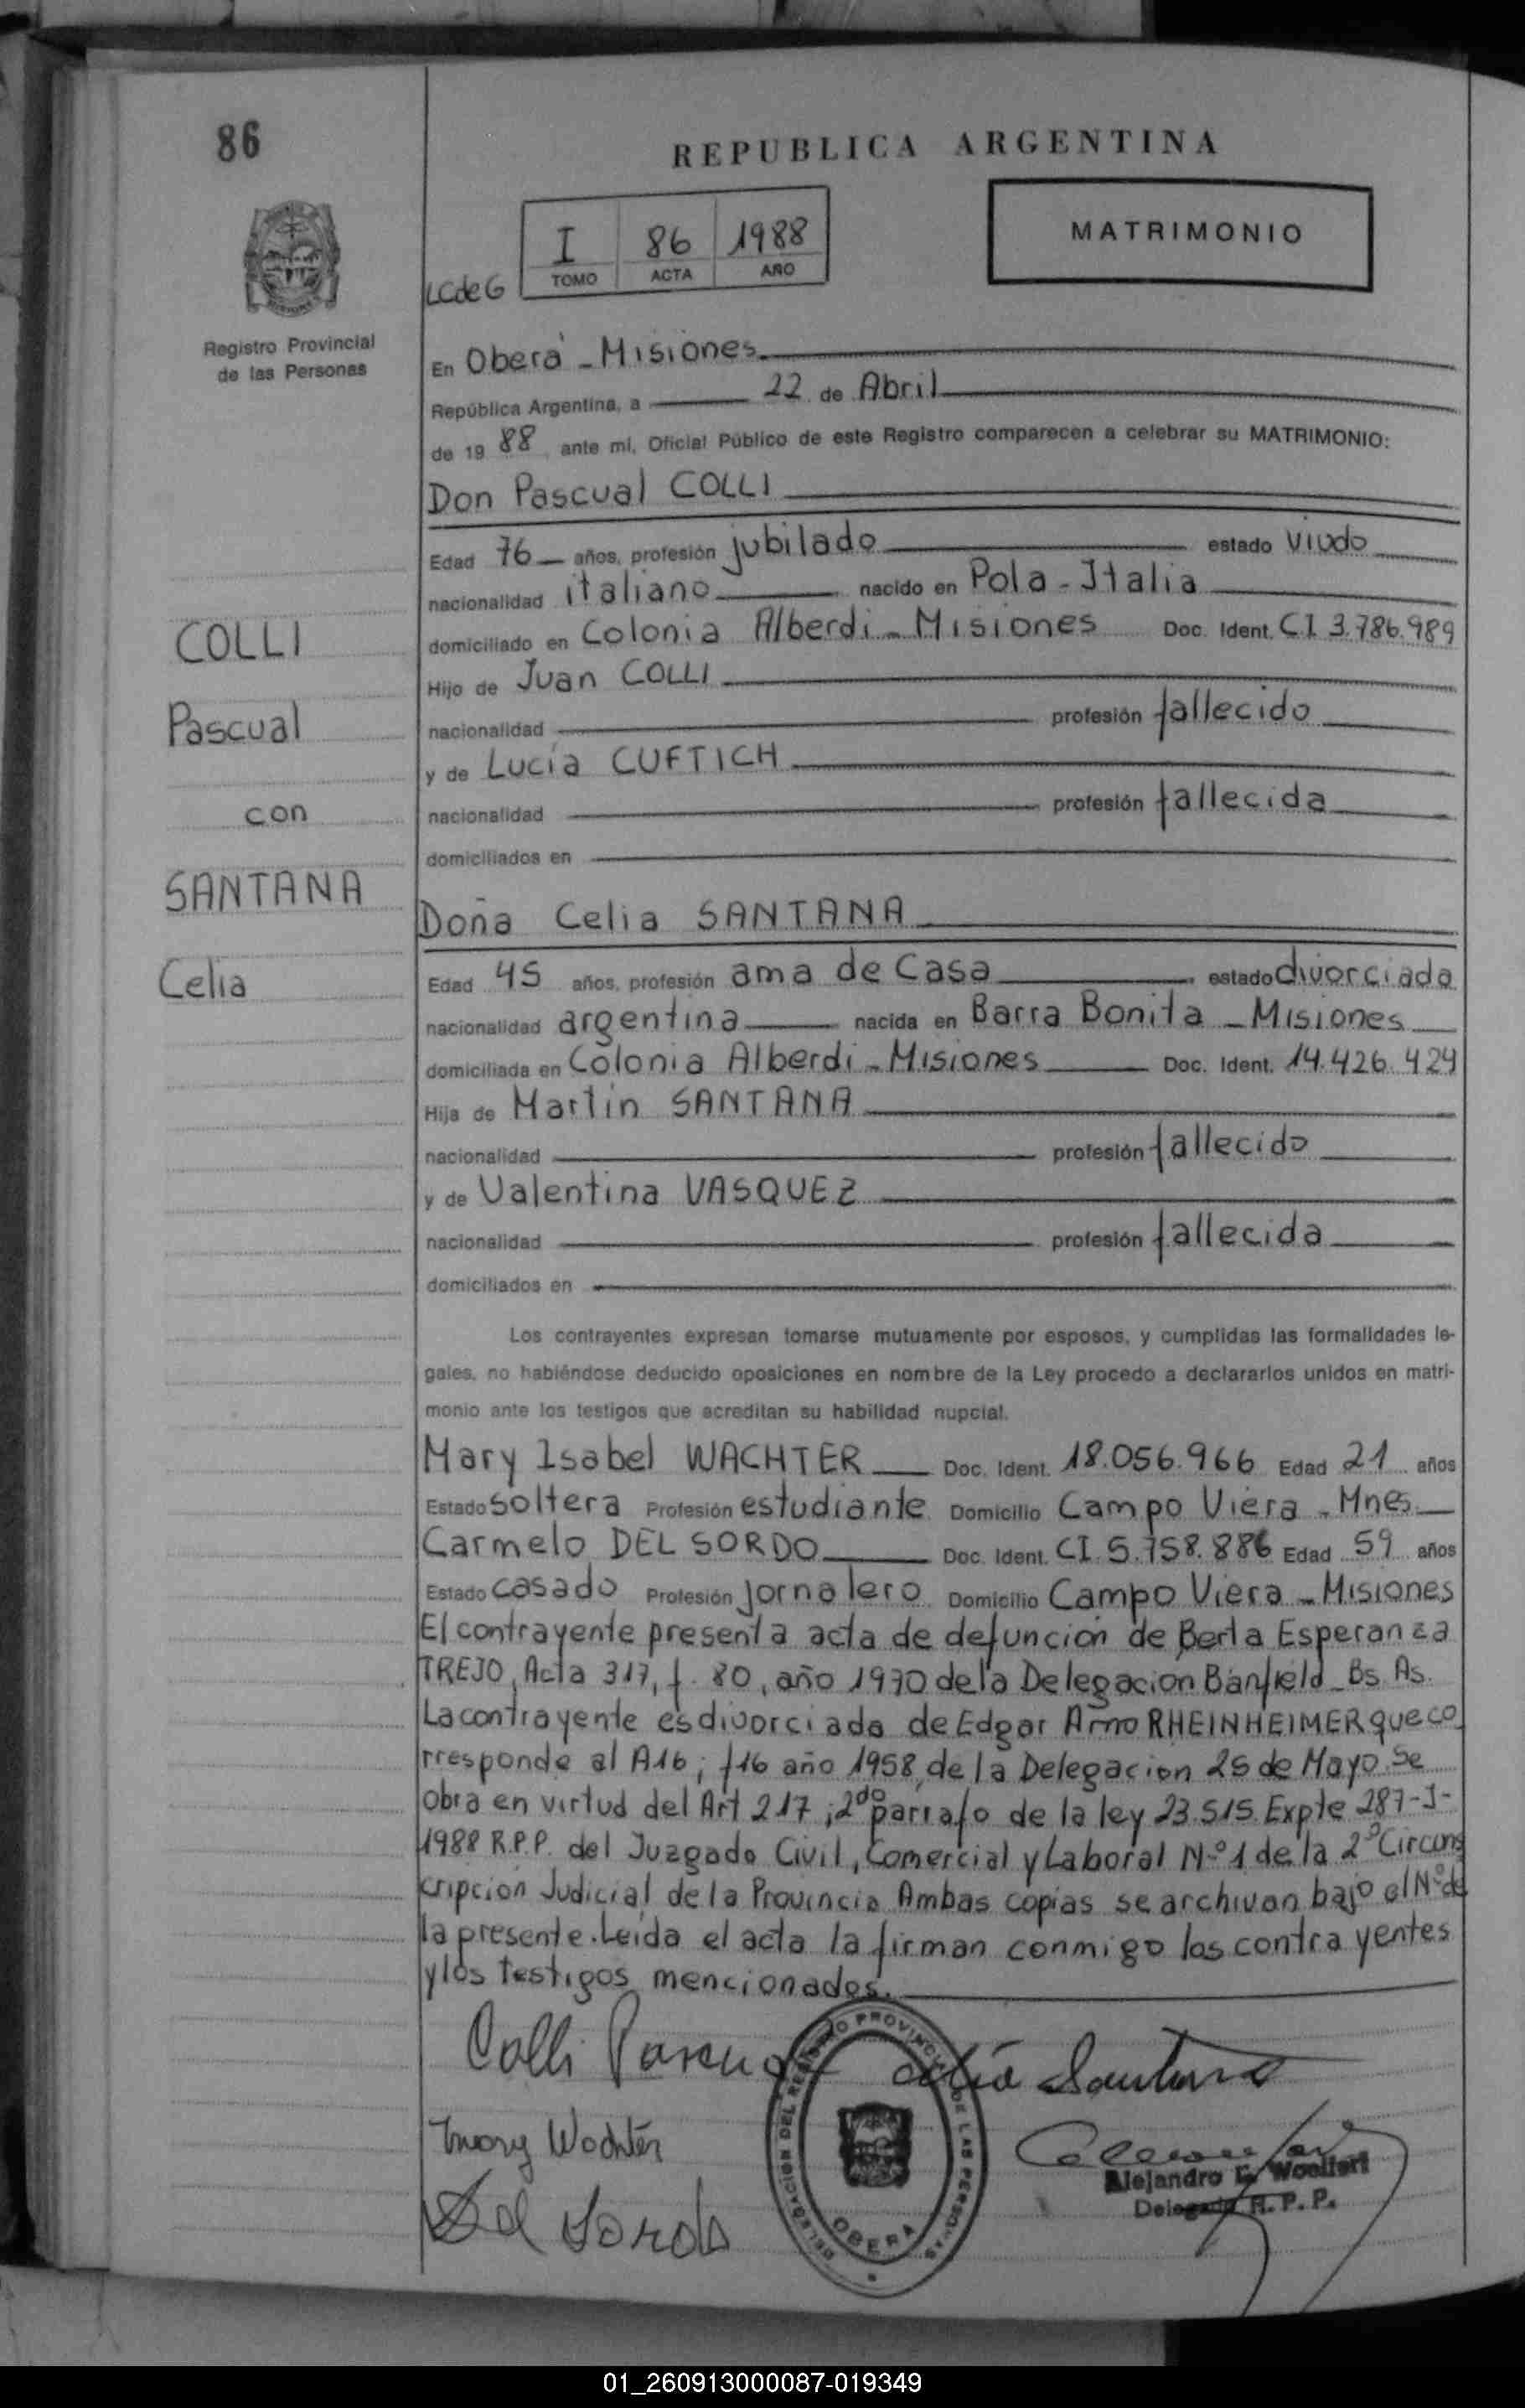 86
REPUBLICA ARGENTINA
I 86 1988
TOMO ACTA AÑO
MATRIMONIO
LCdeG
Registro Provincial
de las Personas
En Oberá - Misiones
República Argentina, a 22 de Abril
de 19 88, ante mi, Oficial Público de este Registro comparecen a celebrar su MATRIMONIO:
Don Pascual COLLI
Edad 76 años, profesión jubilado estado viudo
nacionalidad italiano nacido en Pola - Italia
domiciliado en Colonia Alberdi - Misiones Doc. Ident. C.I 3.786.989
Hijo de Juan COLLI
nacionalidad profesión fallecido
y de Lucía CUFTICH
nacionalidad profesión fallecida
domiciliados en
COLLI
Pascual
con
SANTANA
Celia
Doña Celia SANTANA
Edad 45 años, profesión ama de Casa estado divorciada
nacionalidad argentina nacida en Barra Bonita - Misiones
domiciliada en Colonia Alberdi - Misiones Doc. Ident. 14.426.424
Hija de Martín SANTANA
nacionalidad profesión fallecido
y de Valentina VASQUEZ
nacionalidad profesión fallecida
domiciliados en
Los contrayentes expresan tomarse mutuamente por esposos, y cumplidas las formalidades le-
gales, no habiéndose deducido oposiciones en nombre de la Ley procedo a declararlos unidos en matri-
monio ante los testigos que acreditan su habilidad nupcial.
Mary Isabel WACHTER Doc. Ident. 18.056.966 Edad 21 años
Estado soltera Profesión estudiante Domicilio Campo Viera - Mnes.
Carmelo DEL SORDO Doc. Ident. CI. 5.758.886 Edad 59 años
Estado casado Profesión jornalero Domicilio Campo Viera - Misiones
El contrayente presenta acta de defunción de Berta Esperanza
TREJO, Acta 317, f. 80, año 1970 de la Delegacion Banfield - Bs. As.
La contrayente es divorciada de Edgar Arno RHEINHEIMER que co
rresponde al A16; f16 año 1958, de la Delegacion 25 de Mayo. Se
obra en virtud del Art 217; 2do parrafo de la ley 23.515. Expte 287-J-
1988 R.P.P. del Juzgado Civil, Comercial y Laboral Nº 1 de la 2º Circuns
cripción Judicial de la Provincia Ambas copias se archivan bajo el Nº de
la presente. Leída el acta la firman conmigo los contrayentes
y los testigos mencionados.
Colli Pascual Celia Santana
Mary Wachter
Del Sordo
DELEGACION DEL REGISTRO PROVINCIAL DE LAS PERSONAS
OBERA
Alejandro
Delegado R. P. P.
01_260913000087-019349